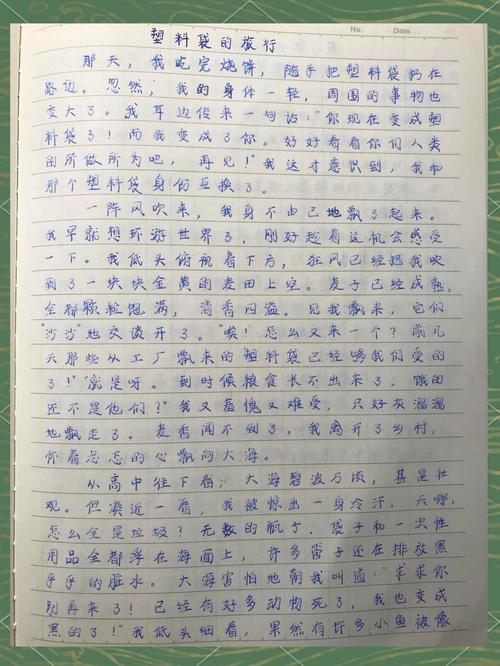 No.
Date.
塑料袋的旅行
那天，我吃完烧饼，随手把塑料袋扔在
路边。忽然，我的身体一轻，周围的事物也
变大了。我耳边传来一句话："你现在变成塑
料袋了！而我变成了你。好好看看你们人类
的所做所为吧，再见！"我这才意识到，我和
那个塑料袋身份互换了。
一阵风吹来，我身不由己地飘了起来。
我早就想环游世界了，刚好趁着这机会感受
一下。我低头俯视着下方，狂风已经把我吹
到了一块块金黄的麦田上空。麦子已经成熟，
全都颗粒饱满，清香四溢。见我飘来，它们
"沙沙"地交谈开了。"唉！怎么又来一个？前几
天那些从工厂飘来的塑料袋已经够我们受的
了！""就是呀。到时候粮食长不出来了，饿的
还不是他们？"我又羞愧又难受，只好灰溜溜
地飘走了。麦香闻不到了，我离开了乡村，
怀着忐忑的心飘向大海。
从高中往下看，大海碧波万顷，甚是壮
观。但凑近一看，我被惊出一身冷汗，天哪，
怎么全是垃圾？无数的瓶子、袋子和一次性
用品全都浮在海面上，许多管子还在排放黑
乎乎的脏水。大海害怕地朝我叫道："求求你
别再来了！已经有好多动物死了，我也变成
黑的了！"我低头细看，果然有许多小鱼被像